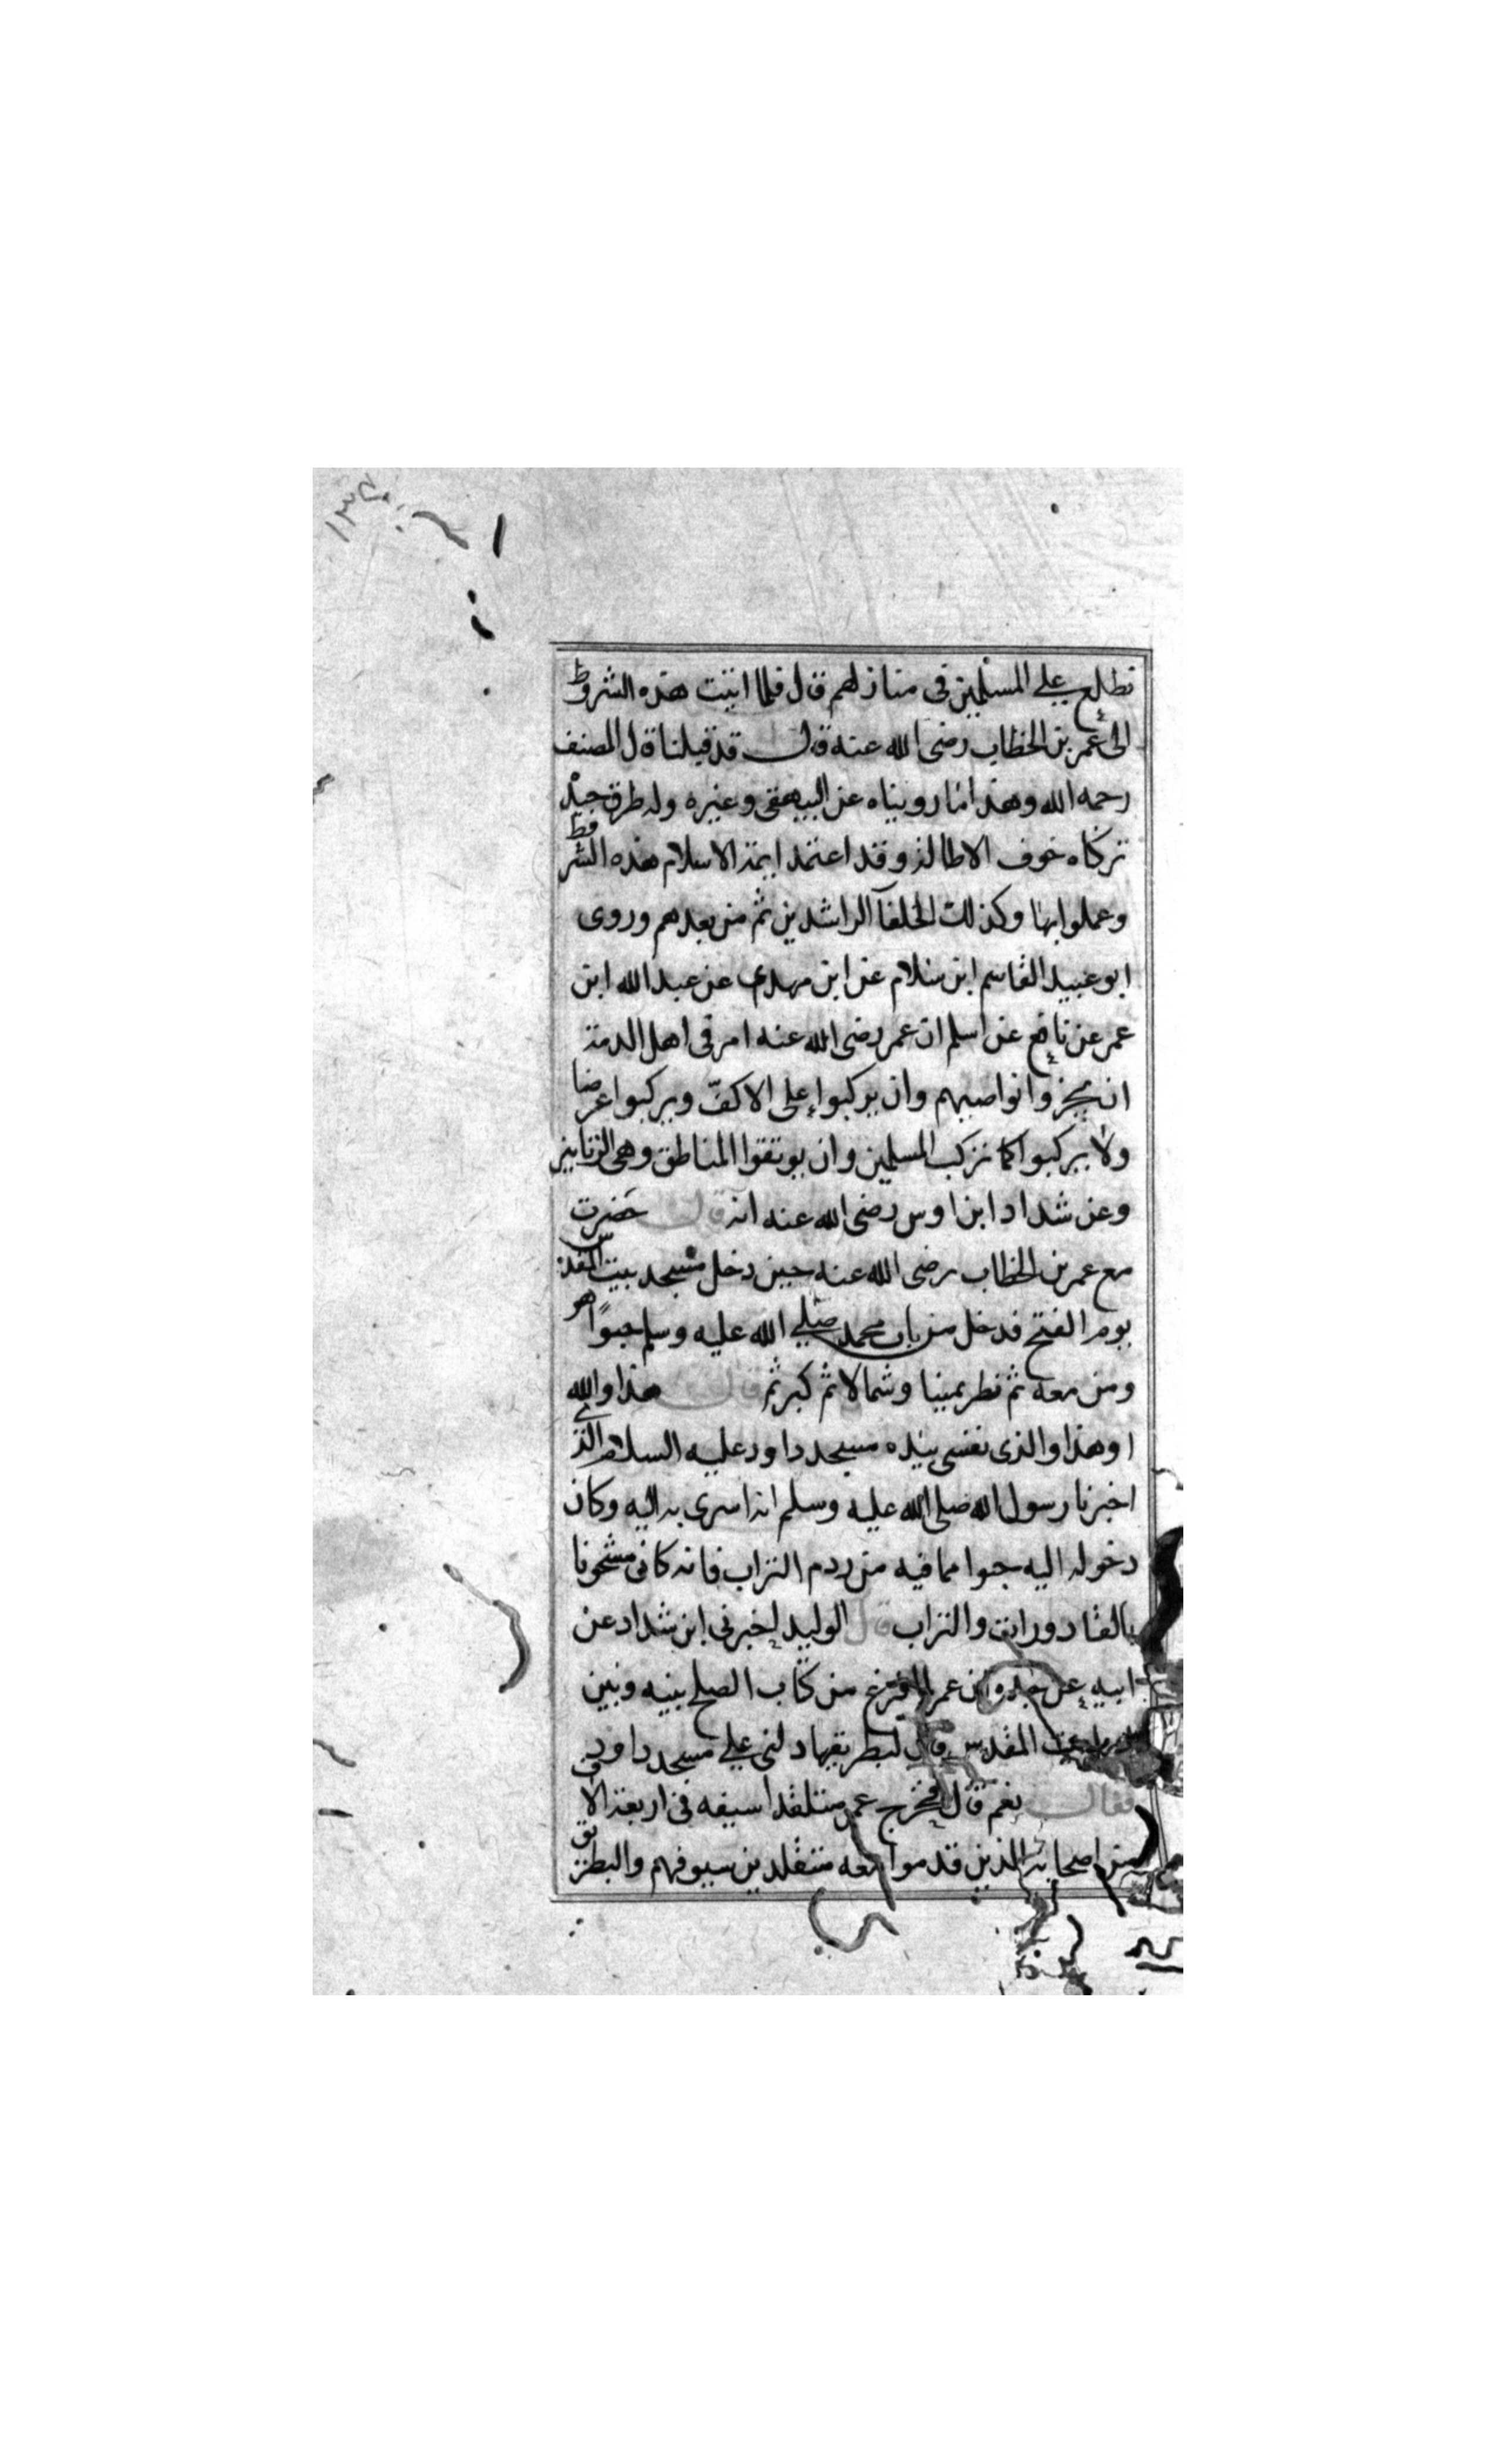 ١٣٤
نطلع على المسلمين في منازلهم قال فلما اتيت هذه الشروط
الى عمر بن الخطاب رضى الله عنه قال قد قبلنا قال المصنف
رحمه الله وهذا ما رويناه عن البيهقى وغيره وله طرق جيد
تركناه خوف الاطالة وقد اعتمد ايمة الاسلام هذه الشروط
وعملوا بها وكذلك الخلفآ الراشدين ثم من بعدهم وروى
ابو عبيد القاسم ابن سلام عن ابن مهدى عن عبد الله ابن
عمر عن نافع عن اسلم ان عمر رضى الله عنه امر في اهل الدمة
ان يجزوا نواصيهم وان يركبوا على الاكف ويركبوا عرضا
ولا يركبوا كما تركب المسلمين وان يوتقوا المناطق وهى الزنانير
وعن شداد ابن اوس رضى الله عنه انه قال حضرت
مع عمر بن الخطاب رضى الله عنه حين دخل مسجد بيت المقدس
يوم الفتح فدخل من باب محمد صلى الله عليه وسلم حبوًا هو
ومن معه ثم نظر يمينا وشمالا ثم كبر ثم قال هذا والله
اوهذا والذى نفسى بيده مسجد داود عليه السلام الذى
اخبرنا رسول الله صلى الله عليه وسلم انه اسرى به اليه وكان
دخوله اليه حبوا مما فيه من ردم التراب فانه كان مشحونا
بالقادورات والتراب قال الوليد اخبرنى ابن شداد عن
ابيه عن جده ان عمر لما فرغ من كتاب الصلح بينه وبين
بيت المقدس قال لبطريقها دلنى على مسجد داود
فقال نعم قال فخرج عمر متقلدا سيفه في اربعة الاف
من اصحابه الذين قدموا معه متقلدين سيوفهم والبطريق